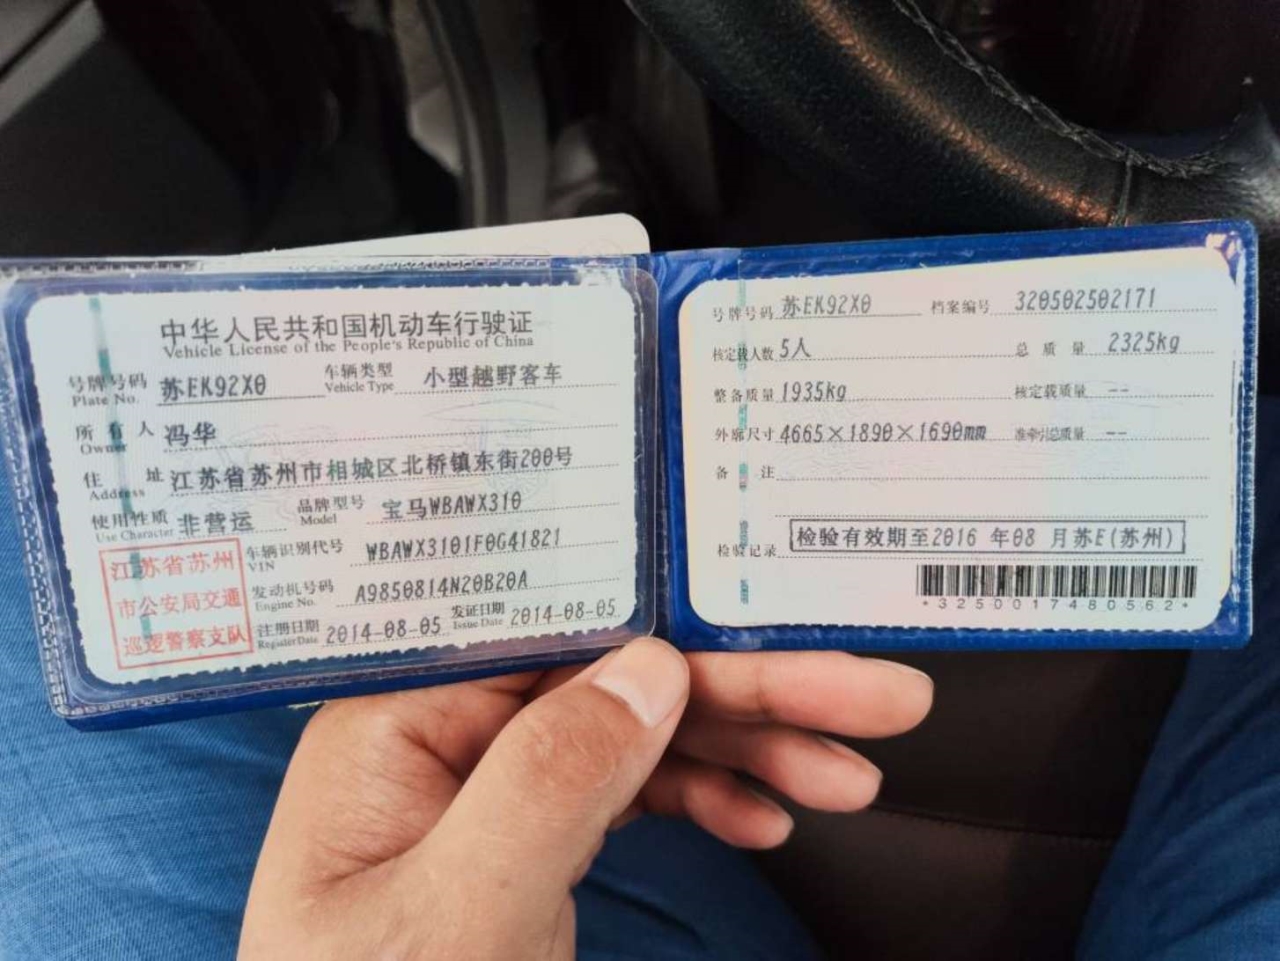 中华人民共和国机动车行驶证
Vehicle License of the People's Republic of China
号牌号码 苏EK92X0 车辆类型 小型越野客车
Plate No. Vehicle Type
所有人 冯华
Owner
住址 江苏省苏州市相城区北桥镇东街200号
Address
使用性质 非营运 品牌型号 宝马WBAWX310
Use Character Model
江苏省苏州
市公安局交通
巡逻警察支队
车辆识别代号 WBAWX3101F0G41821
VIN
发动机号码 A9850814N20B20A
Engine No.
注册日期 2014-08-05 发证日期 2014-08-05
Register Date Issue Date
号牌号码 苏EK92X0 档案编号 320502502171
核定载人数 5人 总质量 2325kg
整备质量 1935kg 核定载质量 --
外廓尺寸 4665×1890×1690mm 准牵引总质量 --
备注
检验记录 检验有效期至2016年08月苏E(苏州)
*3250017480562*